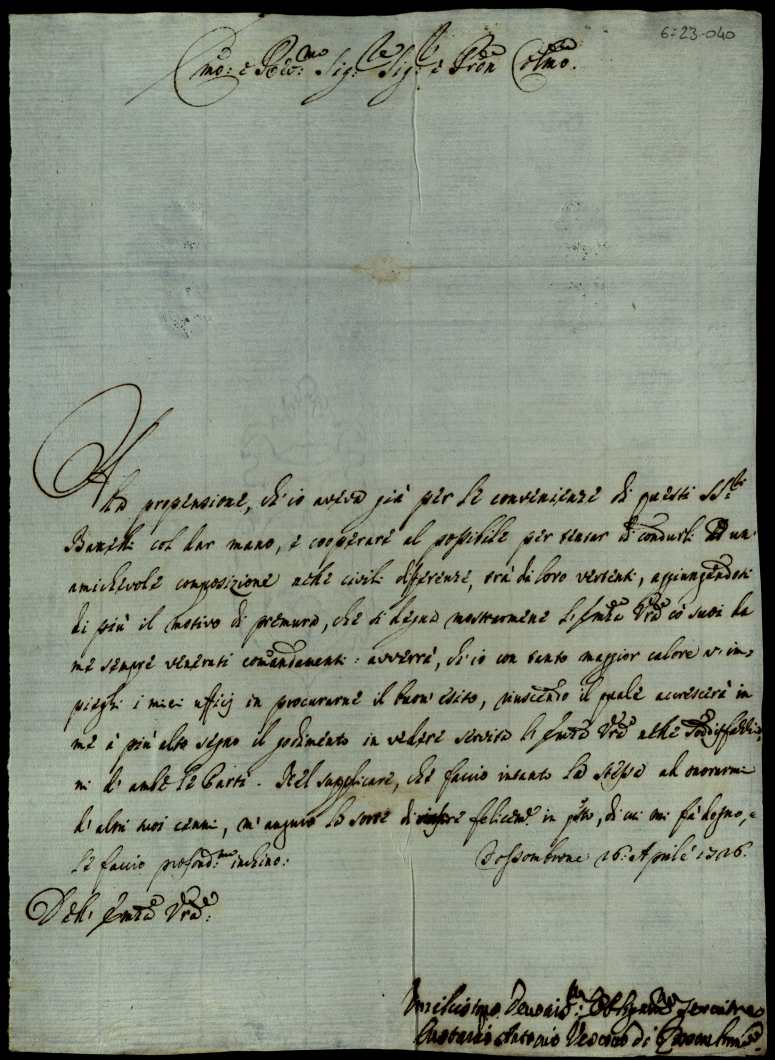 6-23-040
Emo: e Rev:mo Sig:re Sig:re e Pron Colmo.
Alla propensione, ch'io aveva già per le convenienze di questi SS:ri
col dar mano, e cooperare al possibile per tentar di condurli ad un'
amichevole composizione nelle civili differenze, trà di loro vertenti, aggiungendosi
di più il motivo di premura, che si degna mostrarmene l'Emza Vra co' suoi da
me sempre venerati comandamenti: avverrà, ch'io con tanto maggior calore v'im=
pieghi i miei ufficj in procurarne il buon' esito, riuscendo il quale accrescerà in
me à più alto segno il godimento in vedere servita l'Emza Vra nelle soddisfazzio=
ni d'ambe le Parti. Nel supplicare, che faccio intanto la stessa ad onorarmi
d'altri suoi cenni, m'auguro la sorte di felicemte in qsto, di cui mi fà degno, e
le faccio profond:mo inchino:
Fossombrone 26: Aprile 1726.
Dell' Emza Vra:
Umilissimo Devotis:mo Obligatmo Servitore
Antonio Vescovo di Fossombrone